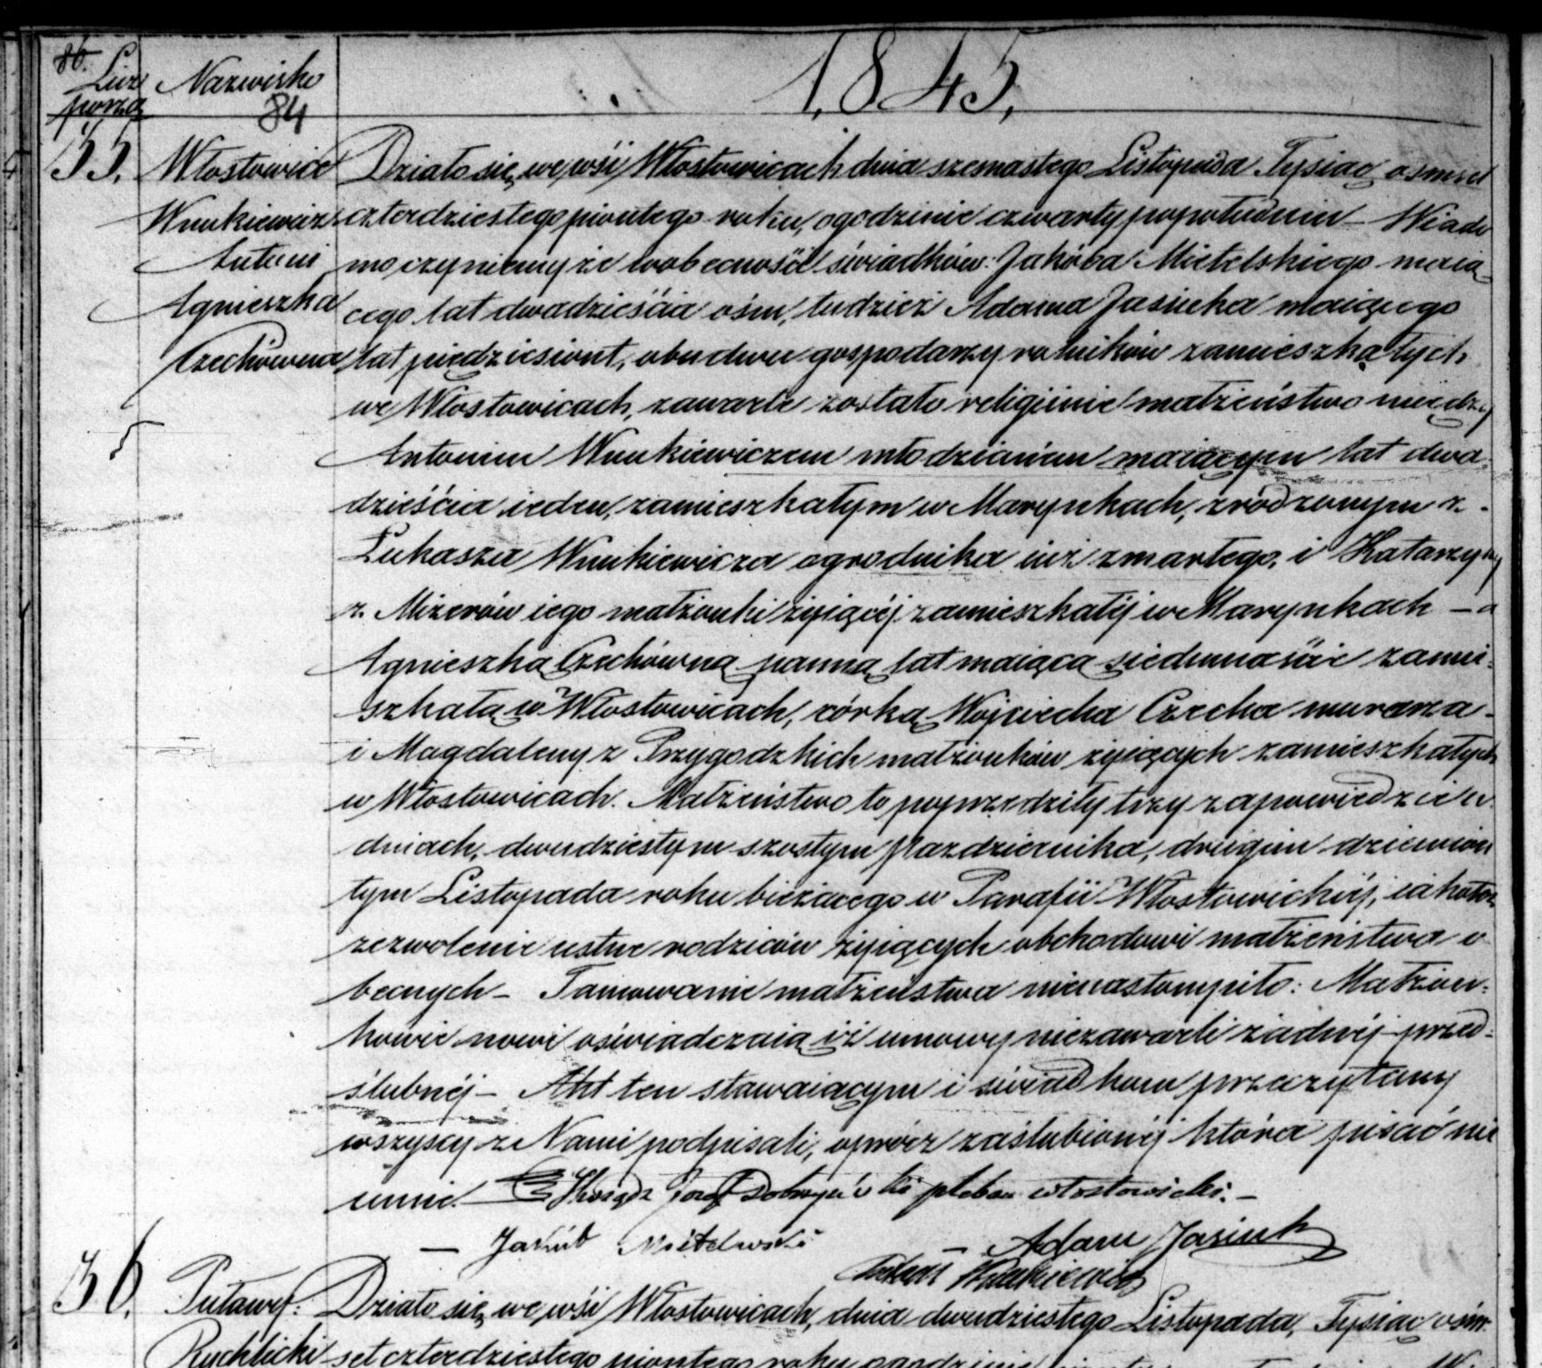 86.
Licz Nazwisko 1845.
porzą 84
35. Włostowice Działo się we wsi Włostowicach dnia szesnastego Listopada Tysiąc osmset
Wnukiewicz czterdziestego piontego roku, ogodzinie czwarty popołudniu – Wiado
Antoni mo czyniemy że wobecności świadków: Jakóba Mietelskiego maią-
Agnieszka cego lat dwadzieścia ośm, tudzież Adama Jasieka maiącego
Czechówna lat piędziesiont, obudwu gospodarzy rolników zamieszkałych
we Włostowicach, zawarte zostało religijnie małżeństwo między
Antonim Wnukiewiczem młodzianem maiącym lat dwa
dzieścia ieden, zamieszkałym w Marynkach, zrodzonym z.
Łukasza Wnukiewicza ogrodnika iuż zmarłego, i Katarzyny
z. Mizerów iego małżonki żyiącéj zamieszkałéj w Marynkach – a
Agnieszką Czechówną panną lat maiącą siedmnaście zamie-
szkałą w Włostowicach, córką Wojciecha Czecha murarza
i Magdaleny z Przygodzkich małżonków żyiących zamieszkałych
w Włostowicach. Małżeństwo to poprzedziły trzy zapowiedzie w
dniach, dwudziestym szostym Pazdziernika, drugim dziewion
tym Listopada roku bieżącego w Parafii Włostowickiéj, iakoteż
zezwolenie ustne rodziców żyiących obchodowi małżeństwa o
becnych – Tamowanie małżeństwa nienastompiło: Małżon-
kowie nowi oświadczaią iż umowy niezawarli żadnéj przed-
ślubnéj – Akt ten stawaiącym i świadkom przeczytany
wszyscy z Nami podpisali, oprócz zaślubionéj która pisać nie
umie. Ksiądz Józef Dobrzyński pleban włostowicki. –
– Jakób Mietelwski – Adam Jasiek
Antoni Wnukiewicz
36. Puławy. Działo się we wsi Włostowicach, dnia dwudziestego Listopada, Tysiąc ośm-
Rychlicki set czterdziestego piontego roku ogodzinie